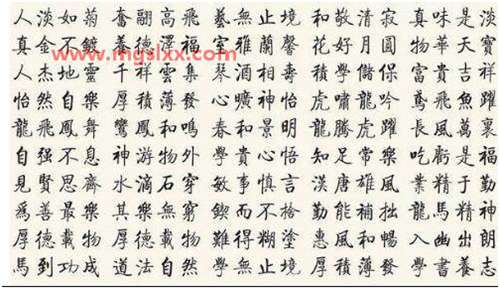 人淡如菊 奮翮高飛 藝無止境 和敬清寂 真味是淡
真金不鍍 德澤 室雅蘭馨 花好月圓 物華天寶
www.mgslxx.com
人杰地靈 千祥雲 琴酒相壽 積學儲保 富貴吉祥
怡然自樂 厚積薄發 心曠神怡 虎嘯龍吟 鳶飛魚躍
龍飛鳳舞 鸞鳳和鳴 春和景明 龍騰虎躍 長風萬裏
自强不息 神游物外 學貴心悟 知足常樂 吃虧是福
見賢思齊 水滴石穿 敏事慎言 漢唐雄風 業精于勤
爲善最樂 其樂無窮 鍥而不捨 勤能補拙 龍馬精神
厚德載物 厚德載物 難得糊塗 惠風和暢 入幽出朗
馬到功成 道法自然 學無止境 厚積薄發 學書養志